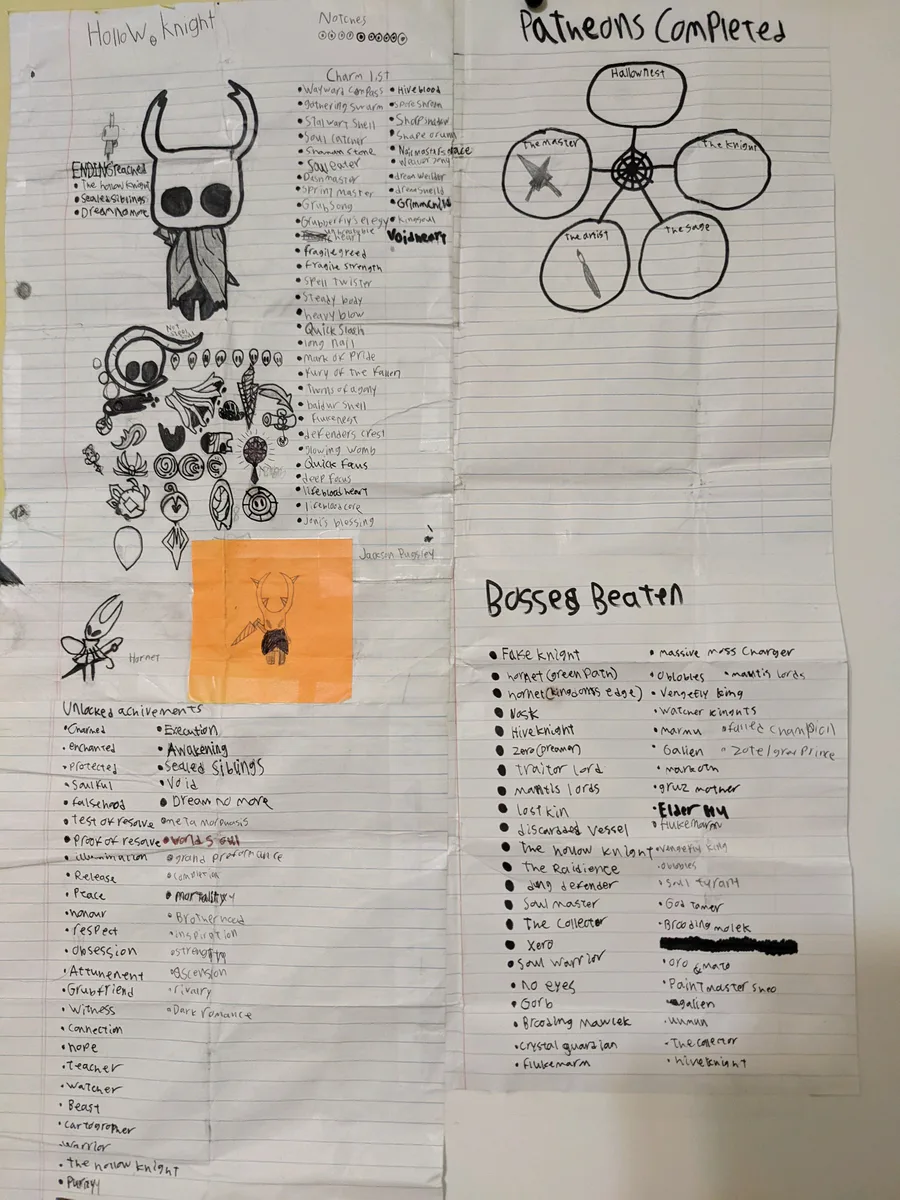 Hollow Knight
Notches
Charm list
ENDINGS reached
• The hollow Knight
• Sealed siblings
• Dream no more
• Wayward compass
• gathering swarm
• Stalwart Shell
• Soul catcher
• Shaman stone
• Soul eater
• Dashmaster
• Sprint Master
• GrubSong
• Grubberfly's elegy
• unbreakable heart
• fragile greed
• Fragile strength
• Spell twister
• Steady body
• heavy blow
• Quick Slash
• long nail
• mark of Pride
• Fury of the Fallen
• Thorns of agony
• baldur shell
• flukenest
• defenders crest
• Glowing womb
• Quick Faus
• deep focus
• lifeblood heart
• lifeblood core
• Joni's blossing
• Hiveblood
• Spore Shroom
• Sharpshadow
• Shape of unn
• Nailmasters
• Weaver song
• dream weilder
• dream sheild
• Grimmchild
• Kingsoul
Void heart
Jackson Pugsley
Hornet
Unlocked achivements
• Charmed
• enchanted
• Protected
• Soulful
• falsehood
• test of resolve
• Proof of resolve
• illumination
• Release
• Peace
• honour
• respect
• obsession
• Attunement
• Grubfriend
• Witness
• Connection
• hope
• teacher
• watcher
• Beast
• cartographer
• Warrior
• the hollow Knight
• Purity
• Execution
• Awakening
• Sealed Siblings
• Void
• Dream no more
• meta morphasis
• grand proformance
• completion
• mortality
• Brotherhood
• inspiration
• Ascension
• rivalry
• Dark romance
Patheons Completed
Hallownest
The master
The Knight
The artist
The Sage
Bosses Beaten
• Fake Knight
• hornet (green Path)
• hornet (kingdoms edge)
• Nosk
• Hive Knight
• Zero (Dreamer)
• Traitor lord
• mantis lords
• lost kin
• discarded Vessel
• The hollow Knight
• The Raidience
• dung defender
• Soul master
• The Collector
• Xero
• Soul Warrior
• no eyes
• Gorb
• Brooding Mawlek
• Crystal guardian
• flukemarm
• massive moss Charger
• Oblobles
• mantis lords
• Vengefly King
• Watcher Kinghts
• marmu
• Galien
• markoth
• gruz mother
• Elder Hu
• flukemarm
• vengefly King
• oblobles
• Soul tyrant
• God tamer
• Brooding molek
• oro & mato
• Paintmaster sheo
• galien
• The collector
• hive knight